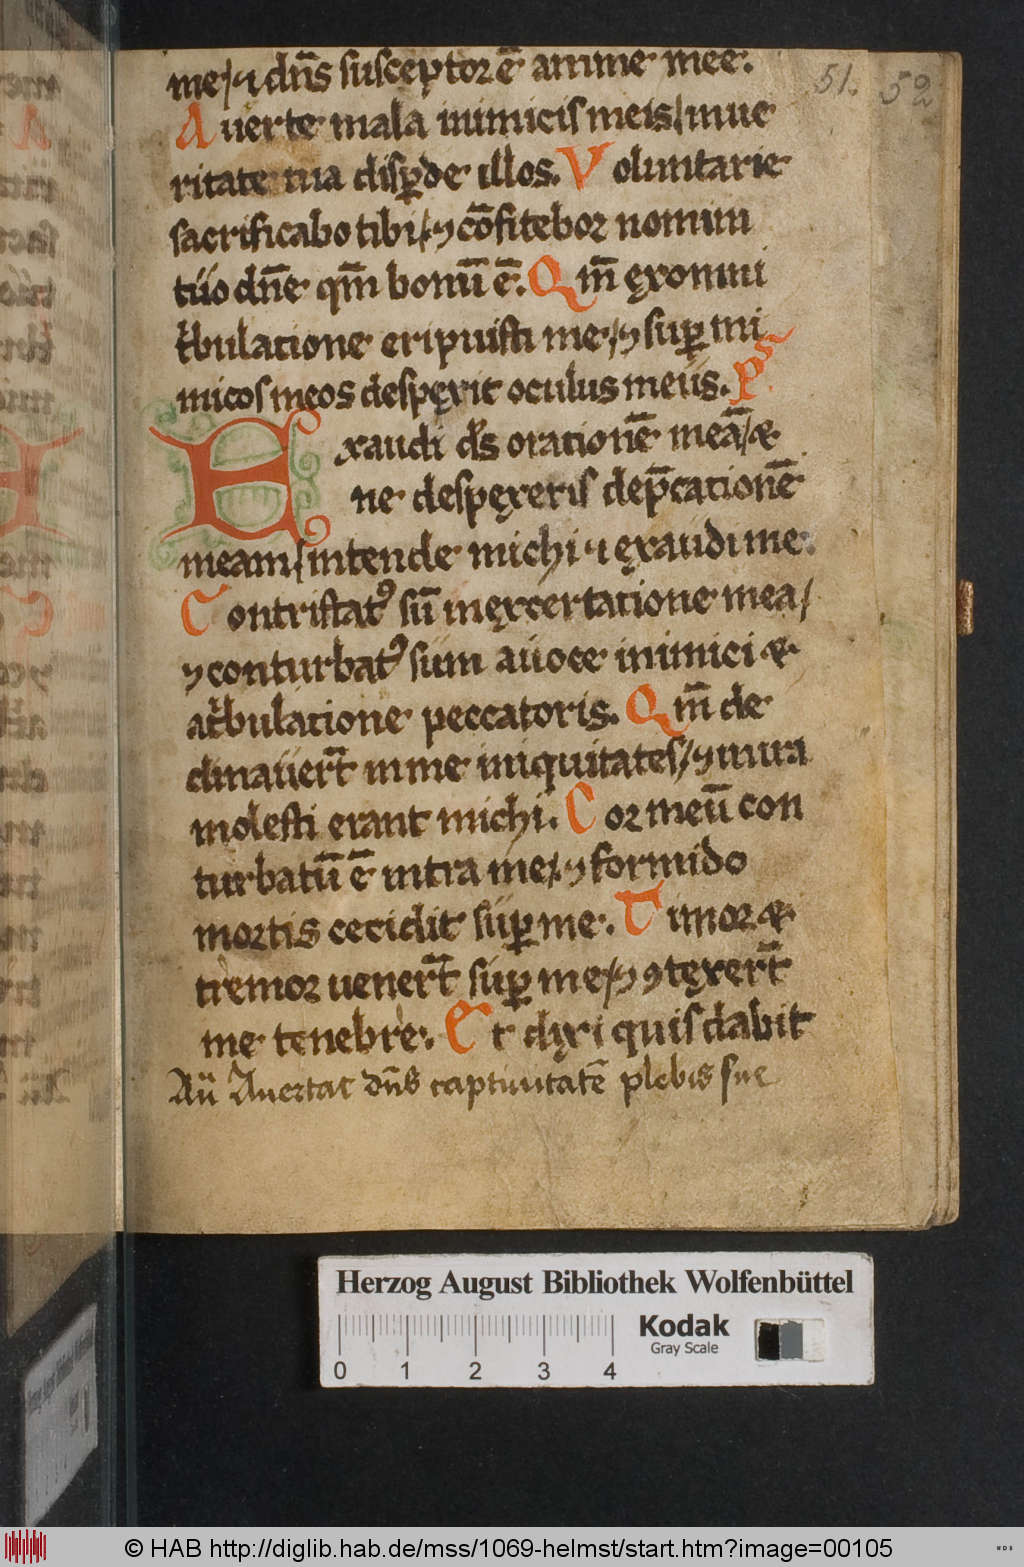 me / ⁊ dn̄s susceptor ē anime mee.
Auerte mala inimicis meis / in ue
ritate tua disp̲de illos. Voluntarie
sacrificabo tibi / ⁊ cōfitebor nomini
tuo dn̄e qm̄ bonū ē. Qm̄ ex omni
t̓bulatione eripuisti me / ⁊ sup̲ ini
micos meos despexit oculus meus. Ps
Exaudi ds̄ orationē meā / &
ne despexeris dep̄cationē
meam / intende michi ⁊ exaudi me.
Contristatꝰ sū in excertatione mea /
⁊ conturbatꝰ sum a uoce inimici &
a t̓bulatione peccatoris. Qm̄ de
clinauer̄t in me iniquitates / ⁊ in ira
molesti erant michi. Cor meū con
turbatū ē intra me / ⁊ formido
mortis cecidit sup̲ me. Timor &
tremor uener̄t sup̲ me / ⁊ ꝯtexer̄t
me tenebre. Et dixi quis dabit
An̄ Auertat dn̄s captiuitatē plebis sue
51. 52
Herzog August Bibliothek Wolfenbüttel
0 1 2 3 4
Kodak
Gray Scale
© HAB http://diglib.hab.de/mss/1069-helmst/start.htm?image=00105